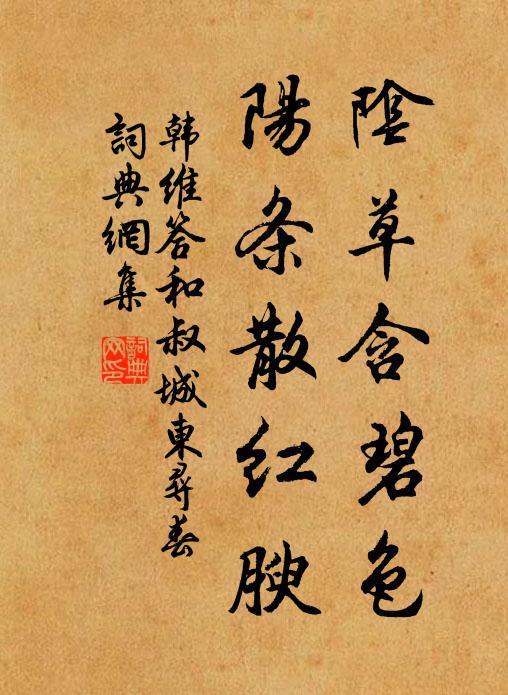 陰草含碧色
陽条散红腴
韩維答和叔城東尋春
詞典網集
詞典
网印